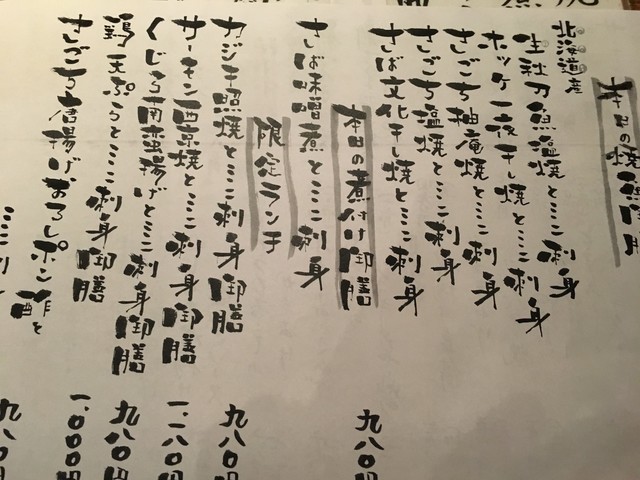 本日の焼魚御膳
北海道産
生秋刀魚塩焼とミニ刺身
ホッケ一夜干し焼とミニ刺身
さごち柚庵焼とミニ刺身
さごち塩焼とミニ刺身
さば文化干し焼とミニ刺身
本日の煮付け御膳 九八〇円
さば味噌煮とミニ刺身
限定ランチ
カジキ照焼とミニ刺身御膳 九八〇円
サーモン西京焼とミニ刺身御膳 一、一八〇円
くじら南蛮揚げとミニ刺身御膳 九八〇円
鶏天ぷらとミニ刺身御膳 一、〇〇〇円
さごち唐揚げおろしポン酢と
ミニ刺 九八〇